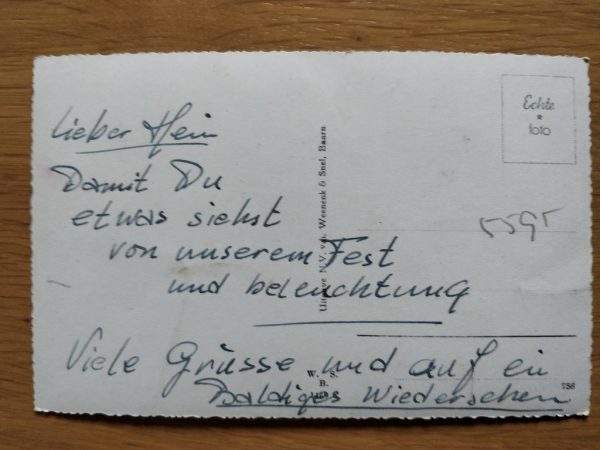 Lieber Hein
Damit Du
etwas siehst
von unserem Fest
und beleuchtung
Viele Grüsse und auf ein
Baldiges Wiedersehen
Echte
*
foto
Uitgave N.V. v.h. Weenenk & Snel, Baarn
5595
W. S.
B.